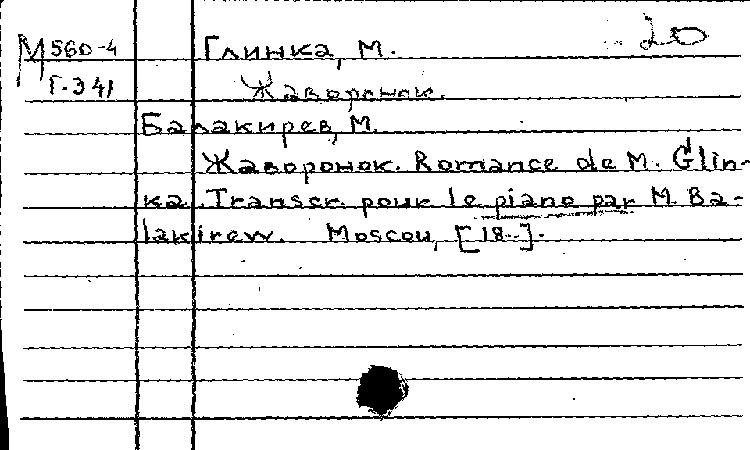 М 560-4 Глинка, М. 20
Г-341 Жаворонок.
Балакирев, М.
Жаворонок. Romance de M. Glin-
ka. Transcr. pour le piano par M. Ba-
lakirew. Moscou, [18..].